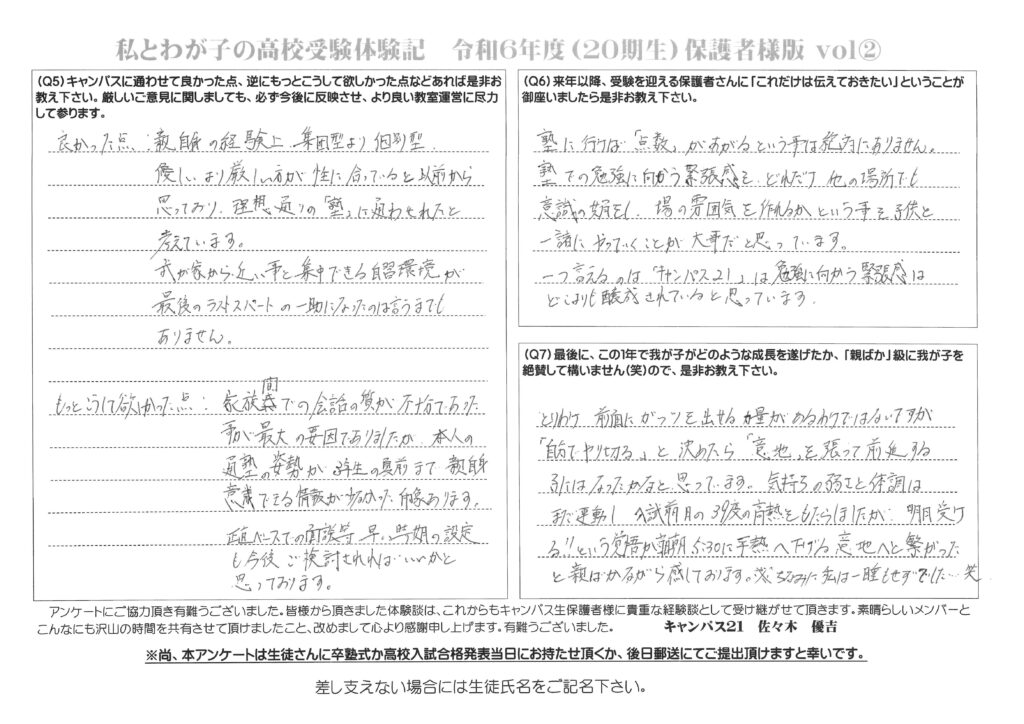 私とわが子の高校受験体験記　令和6年度（20期生）保護者様版 vol②
（Q5）キャンパスに通わせて良かった点、逆にもっとこうして欲しかった点などあれば是非お
教え下さい。厳しいご意見に関しましても、必ず今後に反映させ、より良い教室運営に尽力
して参ります。
良かった点、：親自身の経験上、集団型より個別型、
優しいより厳しい方が性に合っていると以前から
思っており、理想通りの「塾」に通わせれたと
考えています。
我が家から近い事と集中できる自習環境が
最後のラストスパートの一助になったのは言うまでも
ありません。
もっとこうして欲しかった点：家族間での会話の質が不十分であった
事が最大の要因でありましたが、本人の
通塾の姿勢が3年生の直前まで親自身
意識できる情報が少なかった印象あります。
面直ベースでの面談等、早い時期の設定
も今後ご検討されれば…いいかと
思っております。
（Q6）来年以降、受験を迎える保護者さんに「これだけは伝えておきたい」ということが
御座いましたら是非お教え下さい。
塾に行けば「点数」があがるという事は絶対にありません。
塾での勉強に向かう緊張感を、どれだけ他の場所でも
意識し、場の雰囲気を作れるかという事を子供と
一諸にやっていくことが大事だと思っています。
一つ言えるのは「キャンパス21」は勉強に向かう緊張感は
どこよりも醸成されていると思っています。
（Q7）最後に、この1年で我が子がどのような成長を遂げたか、「親ばか」級に我が子を
絶賛して構いません（笑）ので、是非お教え下さい。
とりわけ前面にガッツを出せる力量があるわけではないですが
「自分でやり切る」と決めたら「意地」を張って前進する
子にはなったかなと思っています。気持ちの弱さと体調は
まだ連動し入試前月の39度の高熱をもたらしましたが、明日受け
る!!という覚悟が朝5:30に平熱へ下げる意地へと繋がった
と親ばかながら感じております。ちなみに私は一睡もせずでした…笑
アンケートにご協力頂き有難うございました。皆様から頂きました体験談は、これからもキャンパス生保護者様に貴重な経験談として受け継がせて頂きます。素晴らしいメンバーと
こんなにも沢山の時間を共有させて頂けましたこと、改めまして心より感謝申し上げます。有難うございました。　キャンパス21　佐々木　優吉
※尚、本アンケートは生徒さんに卒塾式か高校入試合格発表当日にお持たせ頂くか、後日郵送にてご提出頂けますと幸いです。
差し支えない場合には生徒氏名をご記名下さい。